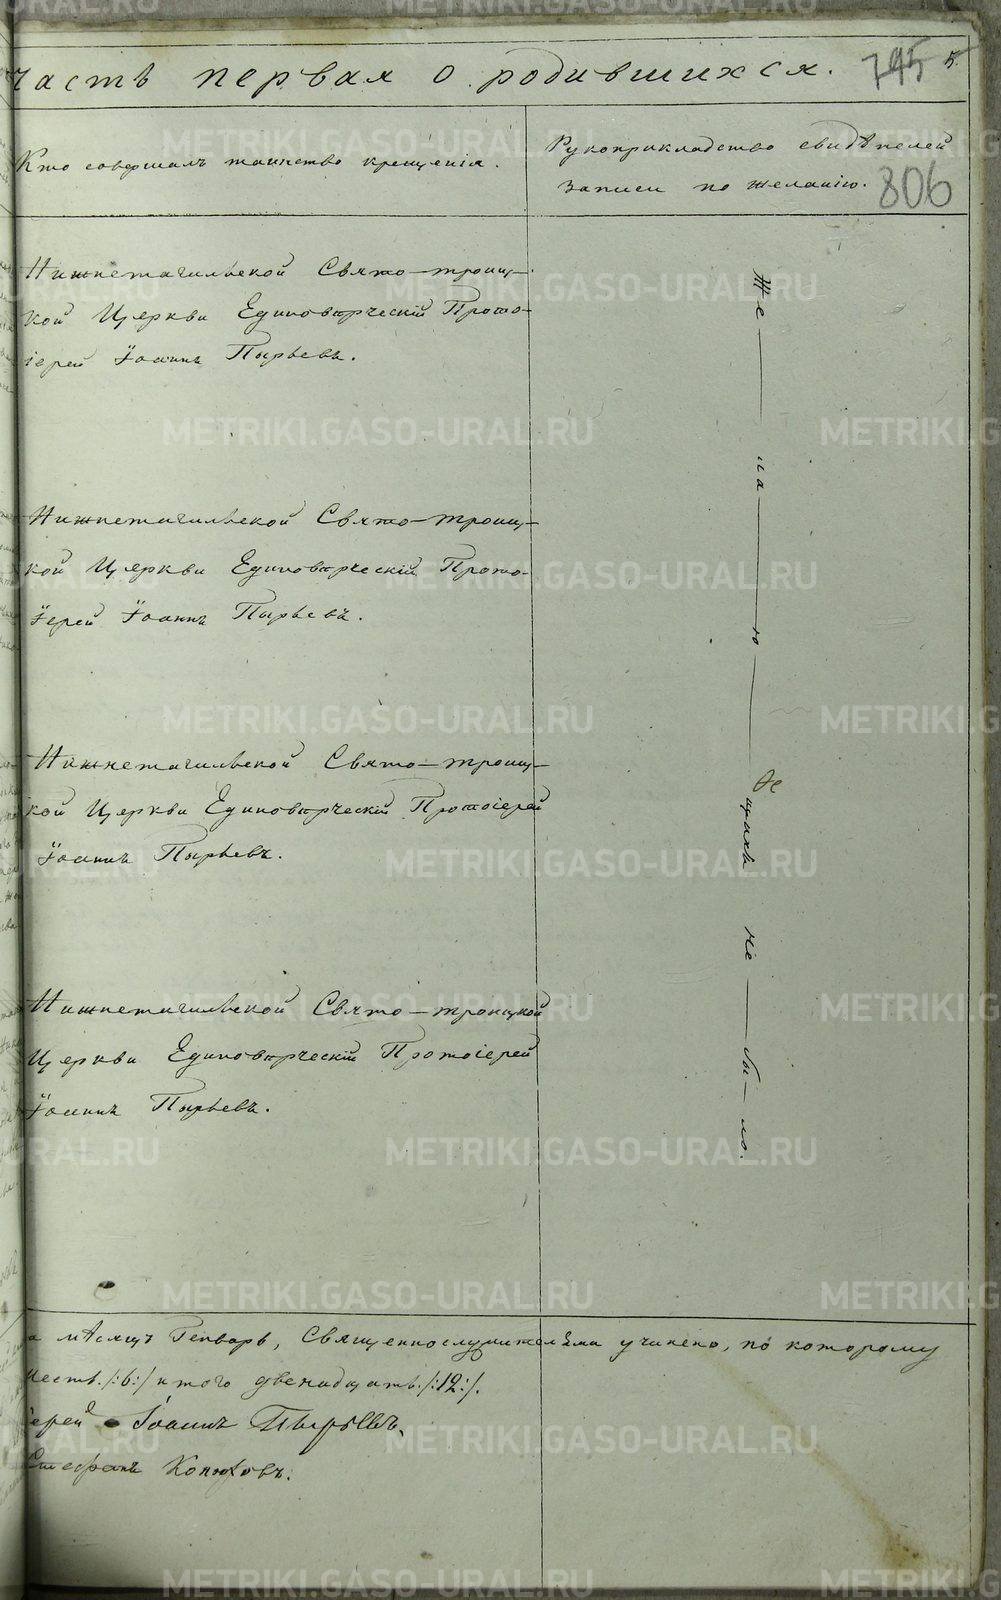 часть первая о родившихся.
795 5
Кто совершалъ таинство крещенія.
Рукоприкладство свидѣтелей
записи по желанію.
806
Нижнетагильской Свято-троиц-
кой Церкви Единовѣрческій Прото-
іерей Іоаннъ Пырьевъ.
Нижнетагильской Свято-троиц-
кой Церкви Единовѣрческій Прото-
іерей Іоаннъ Пырьевъ.
Нижнетагильской Свято-троиц-
кой Церкви Единовѣрческій Протоіерей
Іоаннъ Пырьевъ.
Нижнетагильской Свято-троицкой
Церкви Единовѣрческій Протоіерей
Іоаннъ Пырьевъ.
Же — ла — ю — щихъ не — бы — ло.
а мѣсяцъ Генварь, Священнослужителями учинено, по которому
шесть /:6:/ итого двенадцать /:12:/.
іерей Іоаннъ Пырьевъ.
Стефанъ Конюховъ.
METRIKI.GASO-URAL.RU